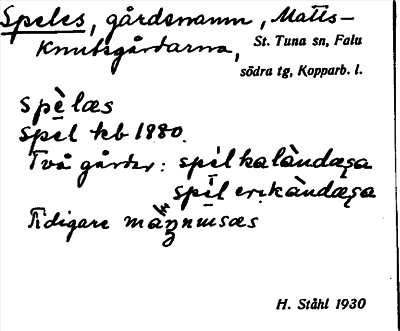 Speles, gårdsnamn, Matts-
Knutsgårdarna, St. Tuna sn, Falu
södra tg, Kopparb. l.
spèlæs
spel kb 1880.
Två gårdar: spil kalàndæsa
spil erikàndæsa
Tidigare
H. Ståhl 1930